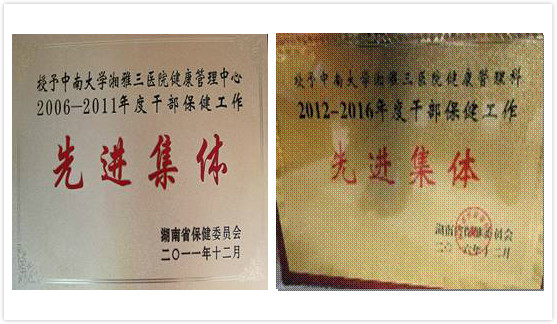 授予中南大学湘雅三医院健康管理中心
2006—2011年度干部保健工作
先进集体
湖南省保健委员会
二〇一一年十二月
授予中南大学湘雅三医院健康管理科
2012-2016年度干部保健工作
先进集体
湖南省保健委员会
二〇一六年十二月